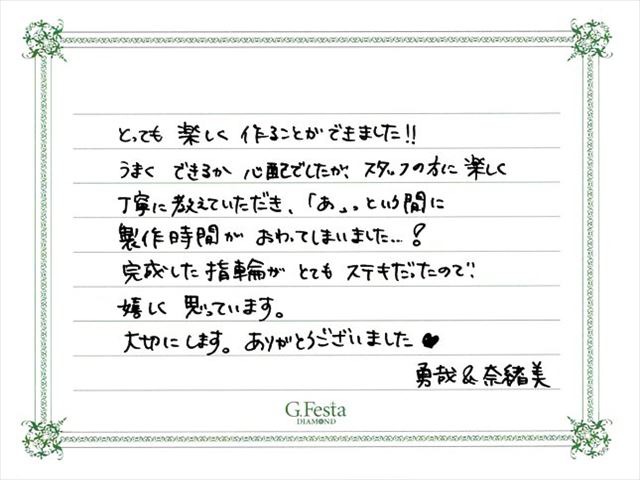 とっても 楽しく 作ることができました!!
うまく できるか 心配でしたが、スタッフの方に 楽しく
丁寧に教えていただき、「あ」っという間に
製作時間が おわってしまいました…!
完成した指輪が とても ステキだったので
嬉しく 思っています。
大切にします。ありがとうございました♥
勇哉&奈緒美
G.Festa
DIAMOND